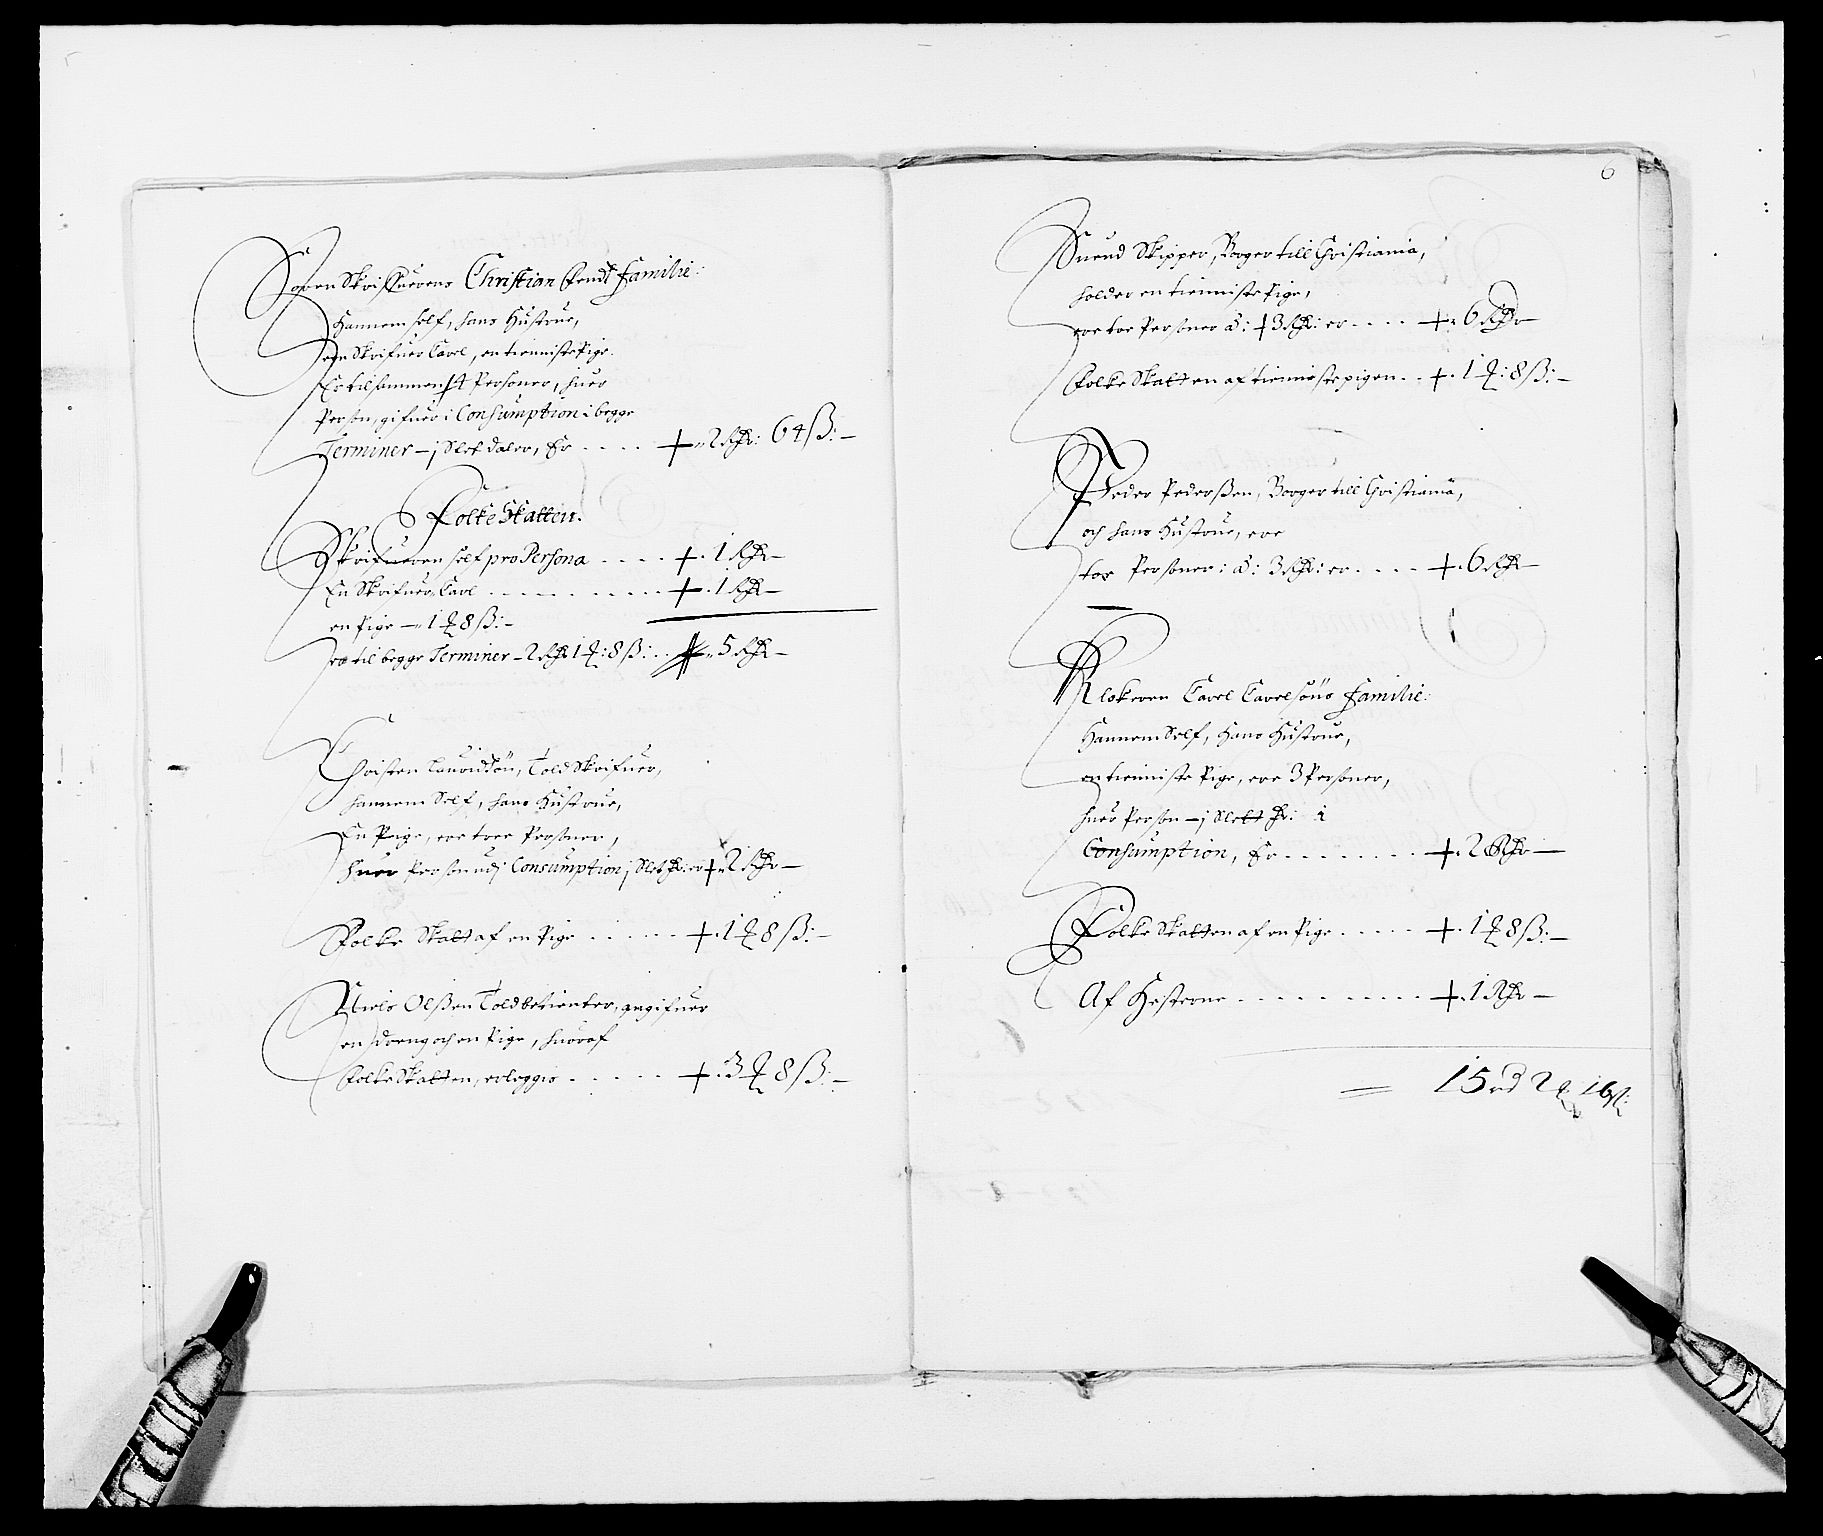 Soren Skrifuerens Christian Fendt Familie:
Hannem self, hans Hustrue,
een Skrifuer Carel, en tienniste Pige.
Er tilsammen 4 Personer, huer
Person, gifuer i Consumption i begge
Terminer – j Slet daler, Er .... 2 Rdr: 64 ß: –
Folke Skatten.
Skrifueren self pro Persona .... 1 Rdr –
En Skrifuer, Carl .......... 1 Rdr –
en Pige – 1 ʒ 8 ß: –
er til begge Terminer – 2 Rdr 1 ʒ: 8 ß: .. 5 Rdr –
Christen Lauridsön, Told Skrifuer,
hannem Self, hans Hustrue,
En Pige, ere tree Personer,
huer Person udj Consumption j Slet dr: er 2 Rdr –
Folke Skatt af en Pige ...... 1 ʒ 8 ß: –
Niels Olßen Toldbetienter, angifuer
en dreng och en Pige, huoraf
Folke Skatten, erlegges ...... 3 ʒ 8 ß: –
6
Suend Skipper, Borger till Christiania,
holder en tienniste Pige,
ere toe Personer á: 3 Rdr: er .... 6 Rdr –
Folke Skatten af tienniste pigen .. 1 ʒ: 8 ß: –
Peder Pederßen, Borger till Christiania,
och hans Hustrue, ere
toe Personer: á: 3 Rdr: er .... 6 Rdr –
Klokeren Carel Carelsöns Familie:
Hannem Self, Hans Hustrue,
en tienniste Pige, ere 3 Personer,
huer Person – j Slett dr: i
Consumption, Er ........ 2 Rdr –
Folke Skatten af en Pige ..... 1 ʒ 8 ß: –
Af Hesterne .......... 1 Rdr –
= 15 rd 2 ʒ 16 ß: